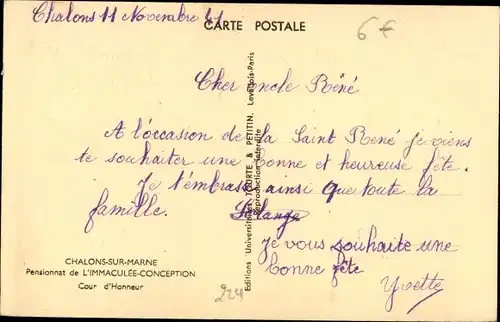 Chalons 11 Novembre 41
CARTE POSTALE
6€
Cher oncle Réné
A l'occasion de la Saint René je viens
te souhaiter une bonne et heureuse fête.
Je t'embrasse ainsi que toute la
famille. Solange
Je vous souhaite une
bonne fête
Yvette
Editions Universitaires, TOURTE & PETITIN, Levallois-Paris
Reproduction interdite
CHALONS-SUR-MARNE
Pensionnat de L'IMMACULÉE-CONCEPTION
Cour d'Honneur
224